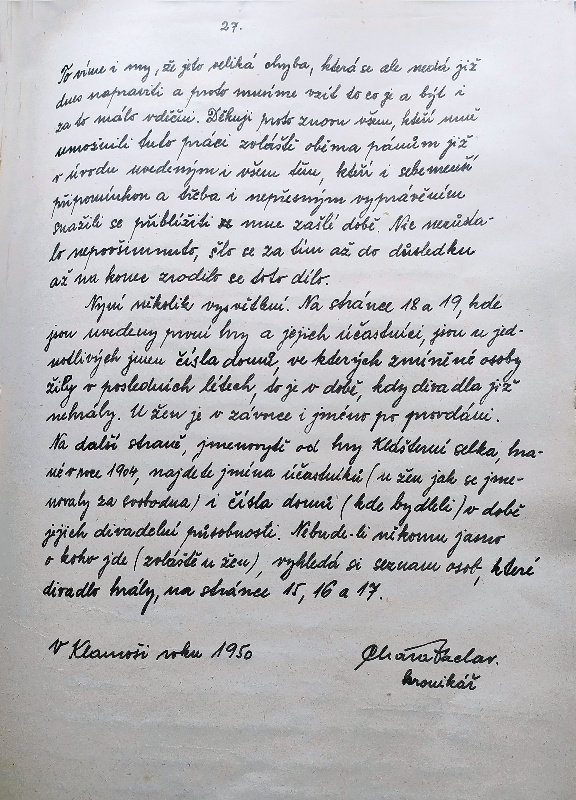 27.
To víme i my, že jeto veliká chyba, která se ale nedá již
dnes napraviti a proto musíme vzít to co je a být i
za to málo vděčni. Děkuji proto znovu všem, kteří mně
umožnili tuto práci zvláště oběma pánům již
v úvodu uvedeným i všem těm, kteří i sebemenší
připomínkou a třeba i nepřesným vyprávěním
snažili se přiblížiti mne zašlé době. Nic nezůsta-
lo nepovšimnuto, šlo se za tím až do důsledku
až na konec zrodilo se toto dílo.
Nyní několik vysvětlení. Na stránce 18 a 19, kde
jsou uvedeny první hry a jejich účastníci, jsou u jed-
notlivých jmen čísla domů, ve kterých zmíněné osoby
žily v posledních létech, to je v době, kdy divadla již
nehrály. U žen je v závorce i jméno po provdání.
Na další straně, jmenovytě od hry Klášterní selka, hra-
né v roce 1904, najdete jména účastníků (u žen jak se jme-
novaly za svobodna) i čísla domů (kde bydleli) v době
jejich divadelní působnosti. Nebude-li někomu jasno
o koho jde (zvláště u žen), vyhledá si seznam osob, které
divadlo hrály, na stránce 15, 16 a 17.
V Klamoši roku 1950
Václav.
kronikář